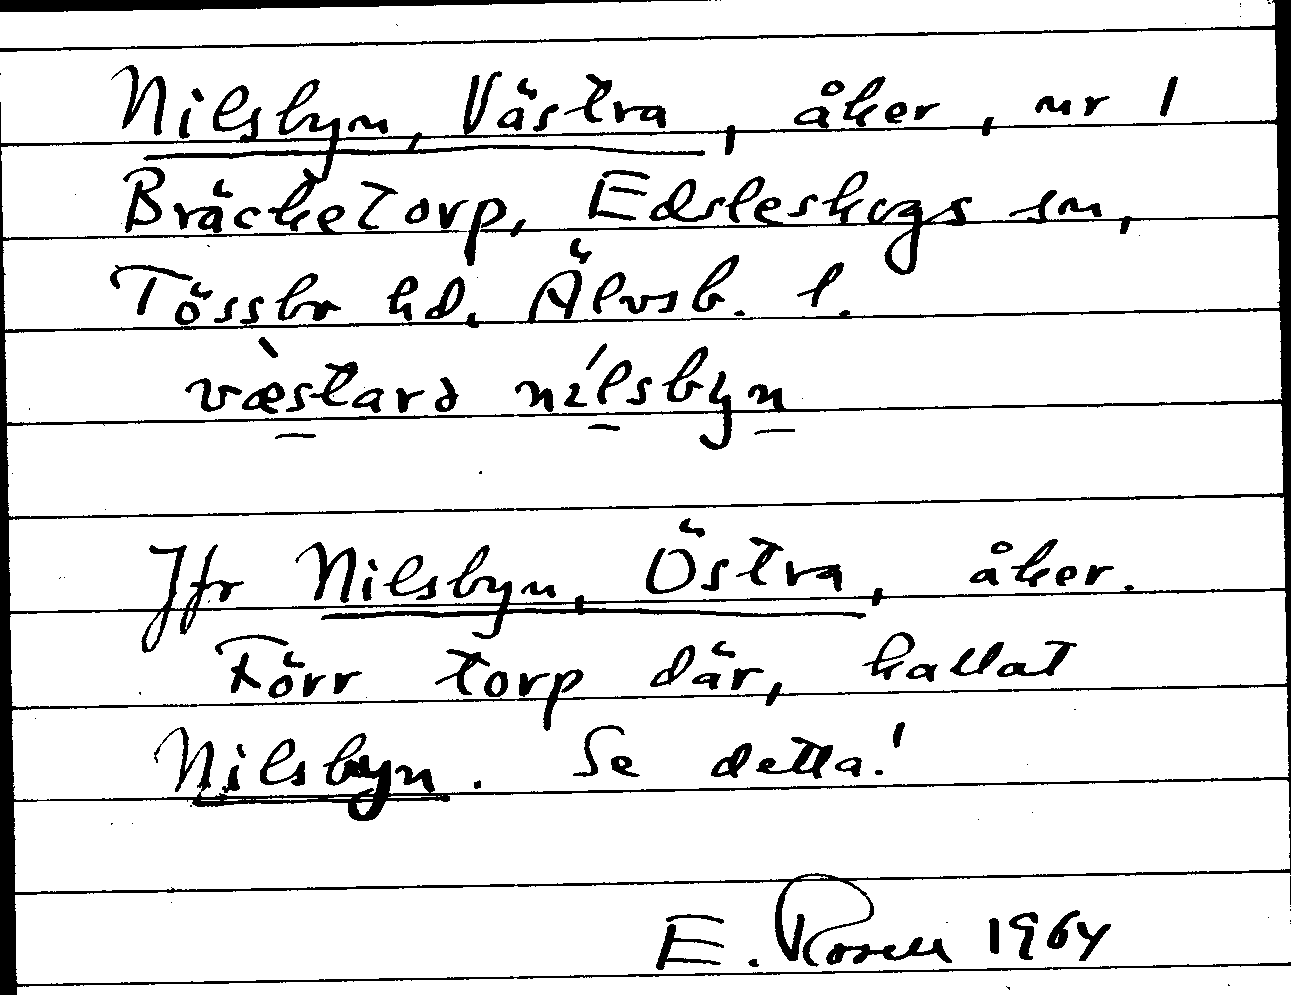 Nilsbyn, Västra, åker, nr 1
Bräcketorp, Edsleskogs sn,
Tössbo hd. Älvsb. l.
væ̀stard nílsbyn
Jfr Nilsbyn, Östra, åker.
Förr torp där, kallat
Nilsbyn. Se detta!
E. Rosell 1964